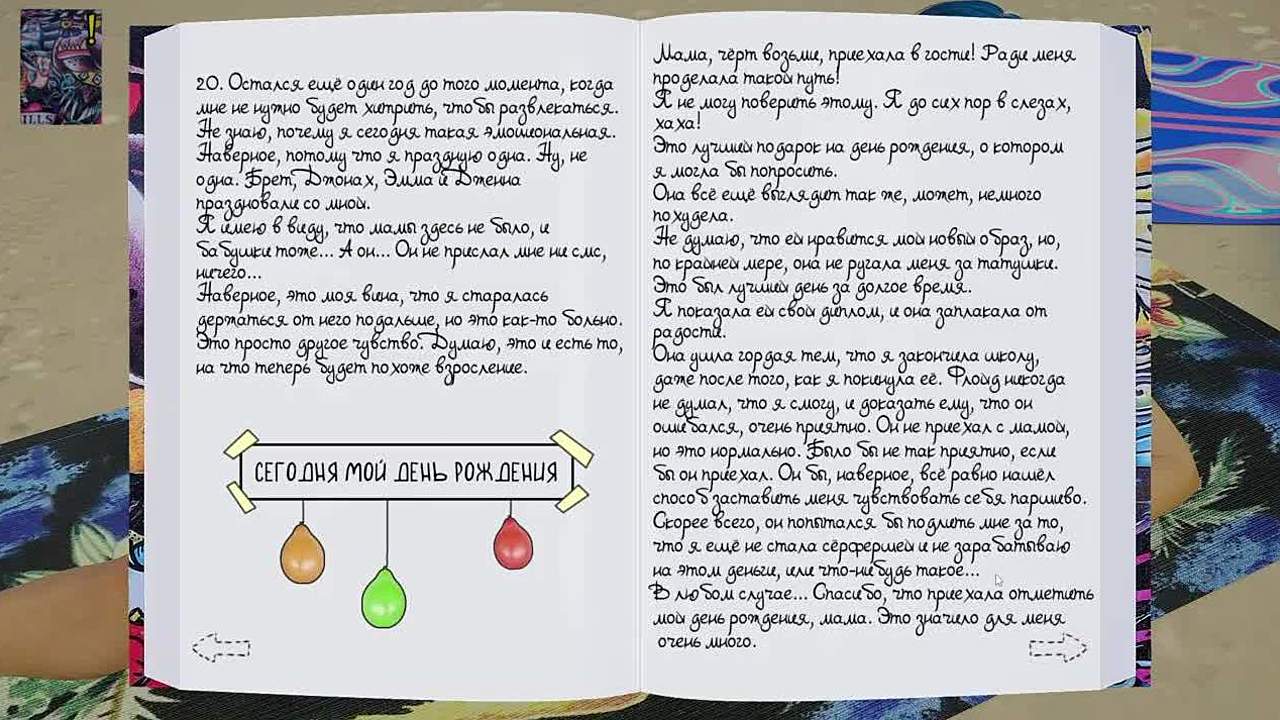 ILLS
20. Остался ещё один год до того момента, когда
мне не нужно будет хитрить, чтобы развлекаться.
Не знаю, почему я сегодня такая эмоциональная.
Наверное, потому что я праздную одна. Ну, не
одна. Брет, Джонах, Эмма и Дженна
праздновали со мной.
Я имею в виду, что мамы здесь не было, и
бабушки тоже... А он... Он не прислал мне ни смс,
ничего...
Наверное, это моя вина, что я старалась
держаться от него подальше, но это как-то больно.
Это просто другое чувство. Думаю, это и есть то,
на что теперь будет похоже взросление.
СЕГОДНЯ МОЙ ДЕНЬ РОЖДЕНИЯ
Мама, чёрт возьми, приехала в гости! Ради меня
проделала такой путь!
Я не могу поверить этому. Я до сих пор в слезах,
хаха!
Это лучший подарок на день рождения, о котором
я могла бы попросить.
Она всё ещё выглядит так же, может, немного
похудела.
Не думаю, что ей нравится мой новый образ, но,
по крайней мере, она не ругала меня за татушки.
Это был лучший день за долгое время.
Я показала ей свой диплом, и она заплакала от
радости.
Она ушла гордая тем, что я закончила школу,
даже после того, как я покинула её. Флойд никогда
не думал, что я смогу, и доказать ему, что он
ошибался, очень приятно. Он не приехал с мамой,
но это нормально. Было бы не так приятно, если
бы он приехал. Он бы, наверное, всё равно нашёл
способ заставить меня чувствовать себя паршиво.
Скорее всего, он попытался бы подлить мне за то,
что я ещё не стала сёрфершей и не зарабатываю
на этом деньги, или что-нибудь такое...
В любом случае... Спасибо, что приехала отметить
мой день рождения, мама. Это значило для меня
очень много.